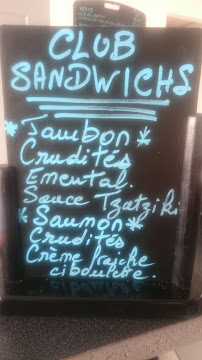 CLUB
SANDWICHS
*Jambon*
Crudités
Emental.
Sauce Tzatziki
*Saumon*
Crudités
Crème fraiche
ciboulette.